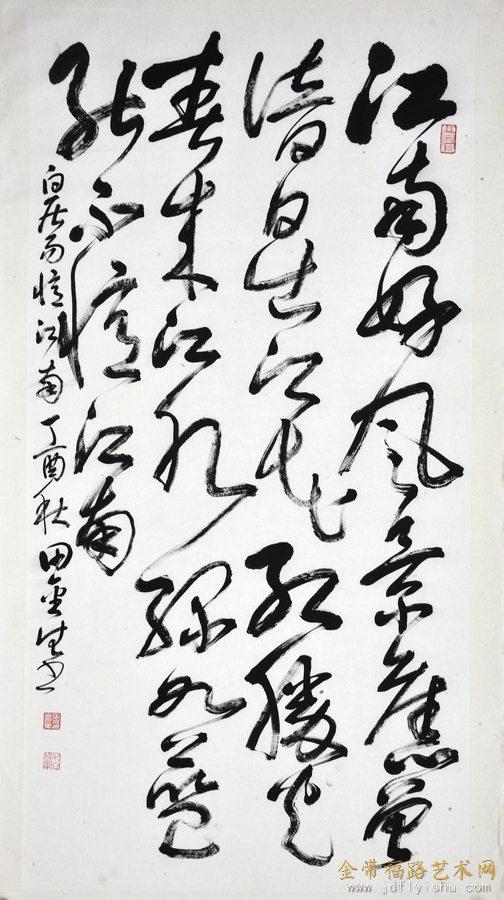 江南好風景舊曾
諳日出江花紅勝火
春來江水綠如藍
能不憶江南
白居易憶江南丁酉秋田金生書
金带福路艺术网
www.jdflyishu.com